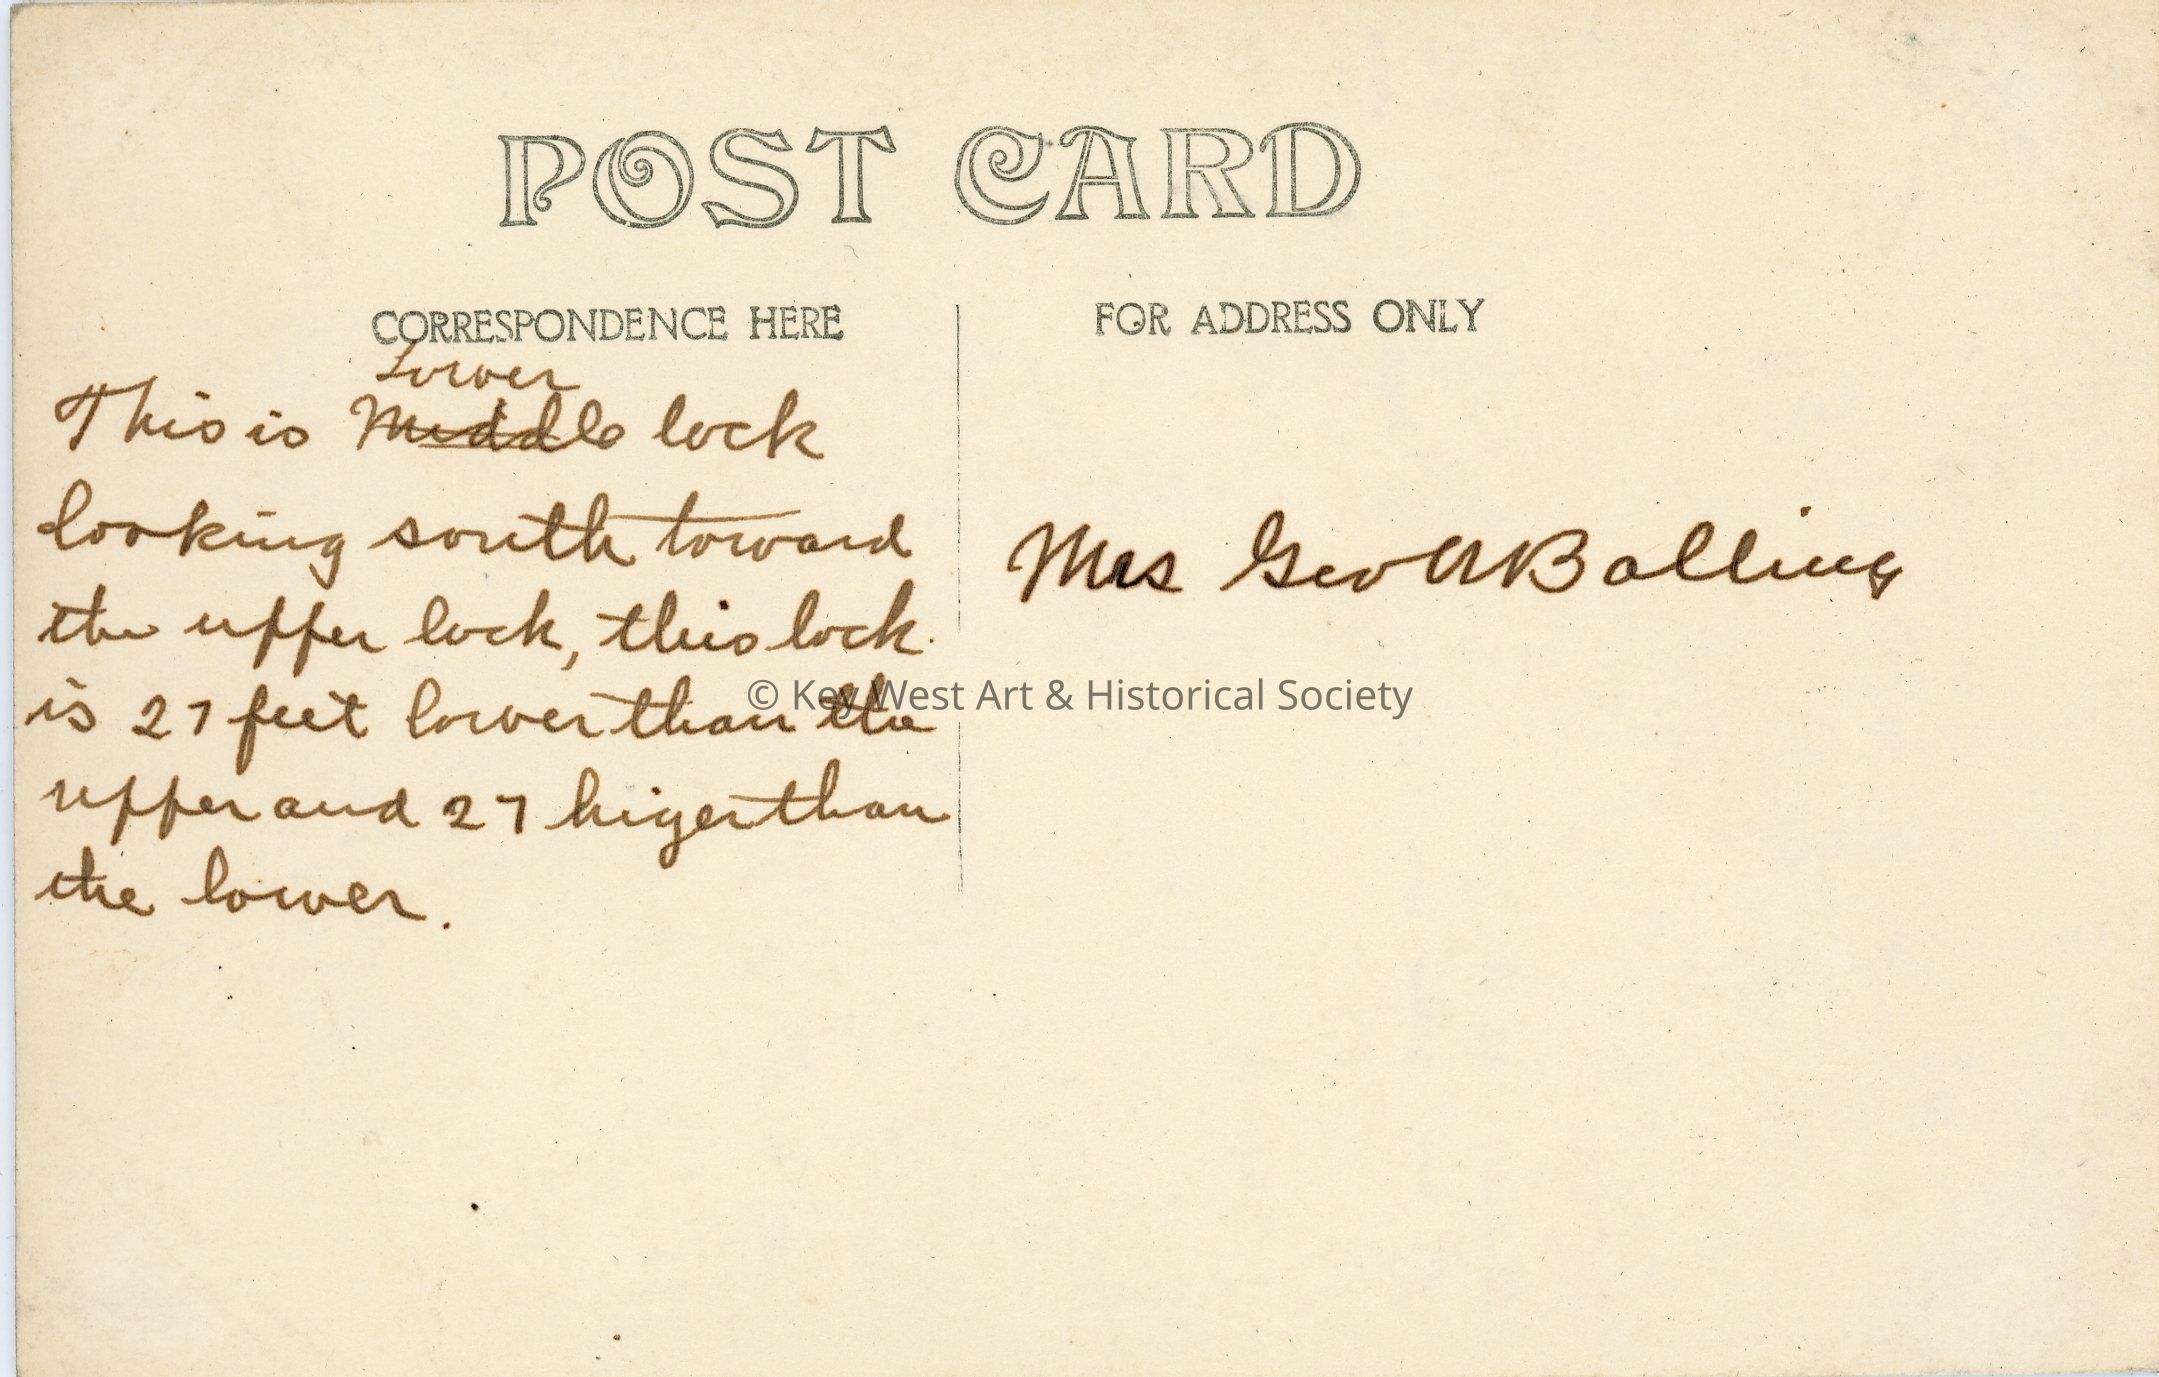 POST CARD
CORRESPONDENCE HERE
FOR ADDRESS ONLY
Lower
This is Middle lock
looking south toward
the upper lock, this lock
is 27 feet lower than the
upper and 27 higer than
the lower.
Mrs Geo A Balling
© Key West Art & Historical Society